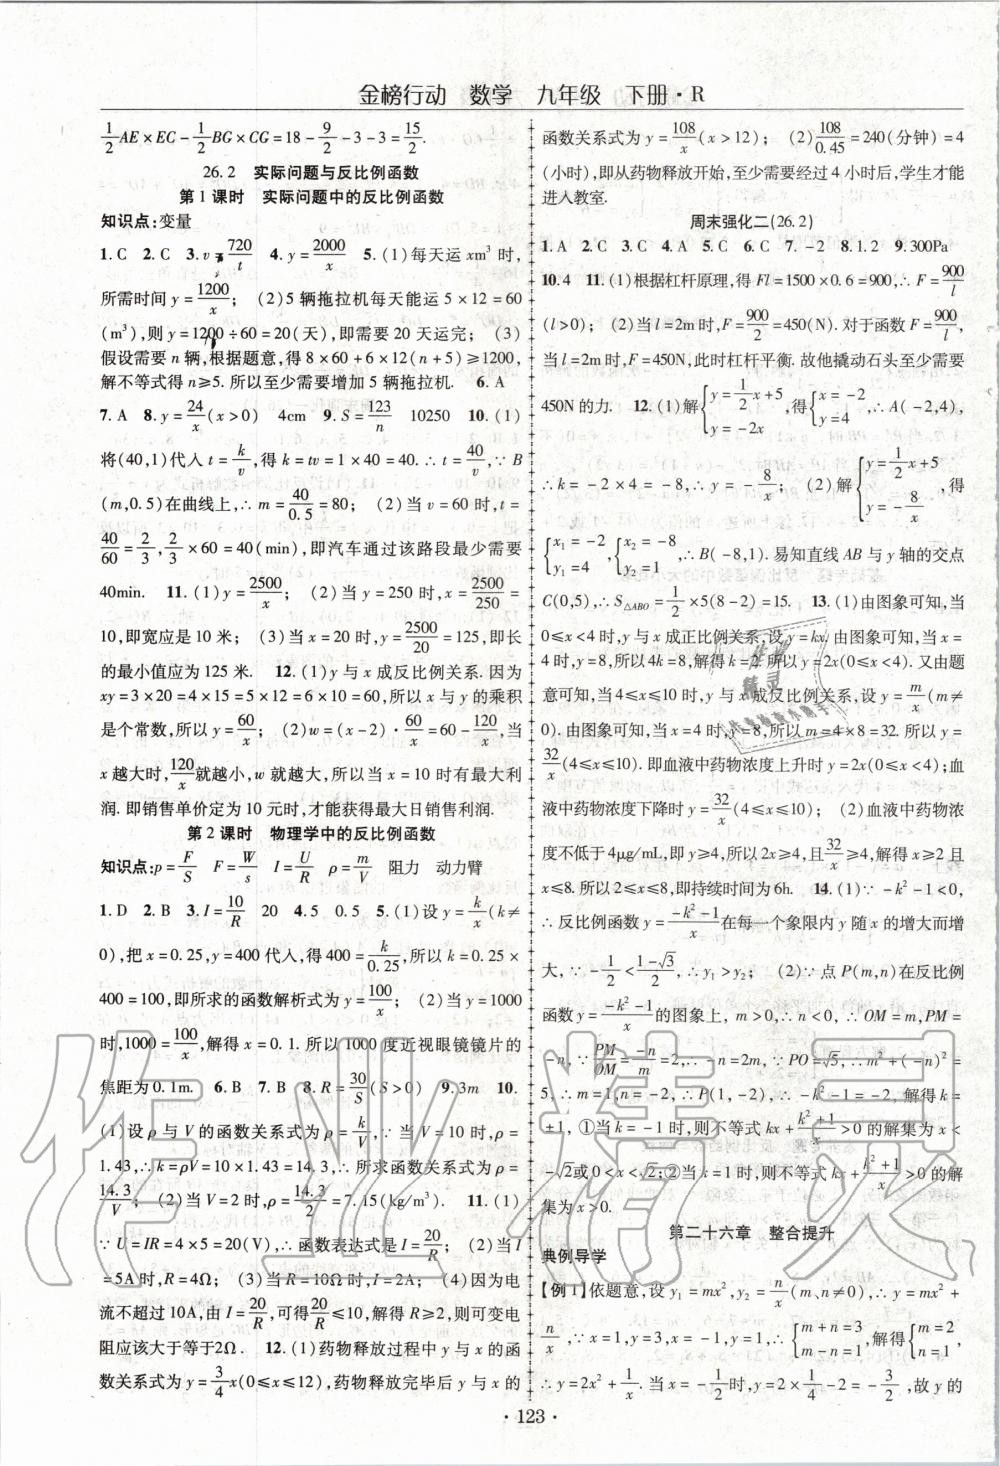 金榜行动 数学 九年级 下册·R
1/2 AE×EC-1/2 BG×CG=18-9/2-3-3=15/2.
26.2 实际问题与反比例函数
第1课时 实际问题中的反比例函数
知识点:变量
1.C 2.C 3.v=720/t 4.y=2000/x 5.(1)每天运xm³时,
所需时间y=1200/x; (2)5辆拖拉机每天能运5×12=60
(m³),则y=1200÷60=20(天),即需要20天运完; (3)
假设需要n辆,根据题意,得8×60+6×12(n+5)≥1200,
解不等式得n≥5.所以至少需要增加5辆拖拉机. 6.A
7.A 8.y=24/x(x>0) 4cm 9.S=123/n 10250 10.(1)
将(40,1)代入t=k/v,得k=tv=1×40=40.∴t=40/v,∵B
(m,0.5)在曲线上,∴m=40/0.5=80; (2)当v=60时,t=
40/60=2/3,2/3×60=40(min),即汽车通过该路段最少需要
40min. 11.(1)y=2500/x; (2)当y=250时,x=2500/250=
10,即宽应是10米; (3)当x=20时,y=2500/20=125,即长
的最小值应为125米. 12.(1)y与x成反比例关系.因为
xy=3×20=4×15=5×12=6×10=60,所以x与y的乘积
是个常数,所以y=60/x; (2)w=(x-2)·60/x=60-120/x,当
x越大时,120/x就越小,w就越大,所以当x=10时有最大利
润.即销售单价定为10元时,才能获得最大日销售利润.
第2课时 物理学中的反比例函数
知识点:p=F/S F=W/s I=U/R ρ=m/V 阻力 动力臂
1.D 2.B 3.I=10/R 20 4.5 0.5 5.(1)设y=k/x(k≠
0),把x=0.25,y=400代入,得400=k/0.25,所以k=0.25×
400=100,即所求的函数解析式为y=100/x; (2)当y=1000
时,1000=100/x,解得x=0.1.所以1000度近视眼镜镜片的
焦距为0.1m. 6.B 7.B 8.R=30/S(S>0) 9.3m 10.
(1)设ρ与V的函数关系式为ρ=k/V,∵当V=10时,ρ=
1.43,∴k=ρV=10×1.43=14.3,∴所求函数关系式为ρ=
14.3/V; (2)当V=2时,ρ=14.3/2=7.15(kg/m³). 11.(1)
∵U=IR=4×5=20(V),∴函数表达式是I=20/R; (2)当I
=5A时,R=4Ω; (3)当R=10Ω时,I=2A; (4)因为电
流不超过10A,由I=20/R,可得20/R≤10,解得R≥2,则可变电
阻应该大于等于2Ω. 12.(1)药物释放过程中y与x的函
数关系式为y=3/4x(0≤x≤12),药物释放完毕后y与x的
函数关系式为y=108/x(x>12); (2)108/0.45=240(分钟)=4
(小时),即从药物释放开始,至少需要经过4小时后,学生才能
进入教室.
周末强化二(26.2)
1.A 2.C 3.A 4.A 5.C 6.C 7.-2 8.1.2 9.300Pa
10.4 11.(1)根据杠杆原理,得Fl=1500×0.6=900,∴F=900/l
(l>0); (2)当l=2m时,F=900/2=450(N).对于函数F=900/l,
当l=2m时,F=450N,此时杠杆平衡.故他撬动石头至少需要
450N的力. 12.(1)解{y=1/2x+5, y=-2x,得{x=-2, y=4,∴A(-2,4),
∴k=-2×4=-8,∴y=-8/x; (2)解{y=1/2x+5 y=-8/x,得
{x₁=-2 y₁=4,{x₂=-8 y₂=1,∴B(-8,1).易知直线AB与y轴的交点
C(0,5),∴S△ABO=1/2×5(8-2)=15. 13.(1)由图象可知,当
0≤x<4时,y与x成正比例关系,设y=kx.由图象可知,当x=
4时,y=8,所以4k=8,解得k=2.所以y=2x(0≤x<4).又由题
意可知,当4≤x≤10时,y与x成反比例关系,设y=m/x(m≠
0).由图象可知,当x=4时,y=8,所以m=4×8=32.所以y=
32/x(4≤x≤10).即血液中药物浓度上升时y=2x(0≤x<4);血
液中药物浓度下降时y=32/x(4≤x≤10); (2)血液中药物浓
度不低于4μg/mL,即y≥4,所以2x≥4,且32/x≥4,解得x≥2且
x≤8.所以2≤x≤8,即持续时间为6h. 14.(1)∵-k²-1<0,
∴反比例函数y=(-k²-1)/x在每一个象限内y随x的增大而增
大,∵-1/2<(1-√3)/2,∴y₁>y₂; (2)∵点P(m,n)在反比例
函数y=(-k²-1)/x的图象上,m>0,∴n<0,∴OM=m,PM=
-n,∵PM/OM=-n/m=2,∴-n=2m,∵PO=√5,∴m²+(-n)²=
5,∴m=1,n=-2,∴P(1,-2),∴-k²-1=-2,解得k=
±1,①当k=-1时,则不等式kx+(k²+1)/x>0的解集为x<
-√2或0<x<√2;②当k=1时,则不等式kx+(k²+1)/x>0的解
集为x>0.
第二十六章 整合提升
典例导学
【例1】依题意,设y₁=mx²,y₂=n/x(m、n≠0),∴y=mx²+
n/x,∵x=1,y=3,x=-1,y=1,∴{m+n=3 m-n=1,解得{m=2, n=1,
∴y=2x²+1/x.当x=-1/2时,y=2×1/4-2=-3/2,故y的
·123·
作业精灵